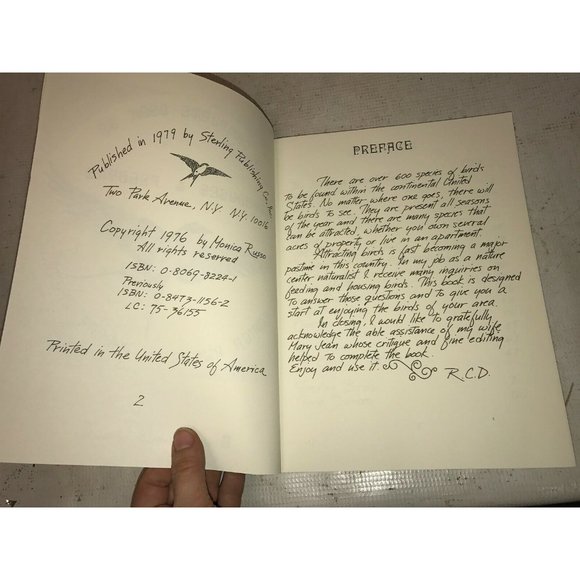 Published in 1979 by Sterling Publishing Co., Inc.
Two Park Avenue, N.Y. N.Y. 10016
Copyright 1976 by Monica Russo
All rights reserved
ISBN: 0-8069-8224-1
Previously
ISBN: 0-8473-1156-2
LC: 75-36155
Printed in the United States of America
2
PREFACE
There are over 600 species of birds
to be found within the continental United
States. No matter where one goes, there will
be birds to see. They are present all seasons
of the year and there are many species that
can be attracted, whether you own several
acres of property or live in an apartment.
Attracting birds is fast becoming a major
pastime in this country. In my job as a nature
center naturalist I receive many inquiries on
feeding and housing birds. This book is designed
to answer those questions and to give you a
start at enjoying the birds of your area.
In closing, I would like to gratefully
acknowledge the able assistance of my wife
Mary Jean whose critique and fine editing
helped to complete the book.
Enjoy and use it. R.C.D.